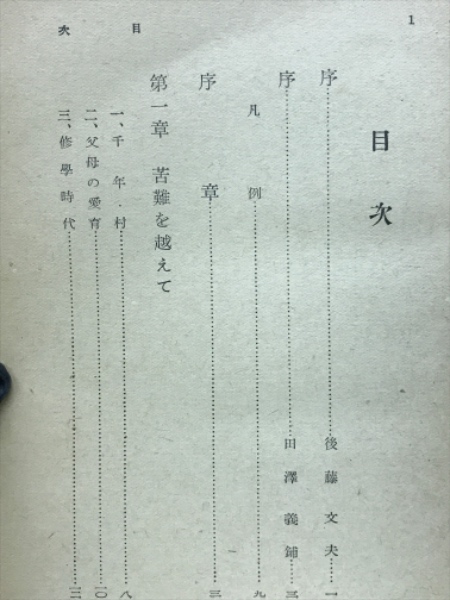 1
目次
目次
序 後藤文夫 一
序 田澤義鋪 三
凡例 九
序章 三
第一章 苦難を越えて
一、千年・村 八
二、父母の愛育 一〇
三、修學時代